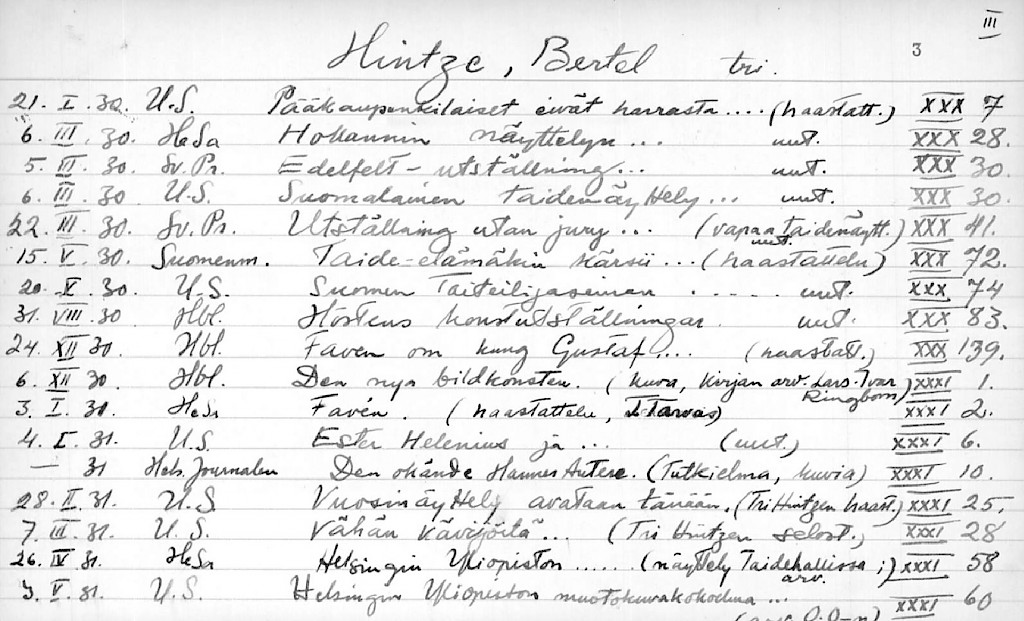 III
3
Hintze, Bertel tri.
21. I. 30. U.S. Pääkaupunkilaiset eivät harrasta .... (haastatt.) XXX 7
6. III. 30. HeSa Hohannin näyttelyn ... uut. XXX 28.
5. III. 30. Sv. Pr. Edelfelt-utställning... uut. XXX 30.
6. III. 30 U.S. Suomalainen taidenäyttely... uut. XXX 30.
22. III. 30. Sv. Pr. Utställning utan jury ... (vapaa taidenäytt.) XXX 41.
uut.
15. V. 30. Suomenm. Taide-elämäkin kärsii ... (haastattelu) XXX 72.
20. V. 30. U.S. Suomen Taiteilijaseuran ..... uut. XXX 74
31. VIII. 30 Hbl. Höstens konstutställningar. uut. XXX 83.
24. XII 30. Hbl. Faven om kung Gustaf ... (haastatt.) XXX 139.
6. XII 30. Hbl. Den nya bildkonsten. (kuva, kirjan arv. Lars-Ivar XXXI 1.
Ringbom)
3. I. 31. HeSa Favén. (haastattelu, Tarvas) XXXI 2.
4. I. 31. U.S. Ester Helenius ja ... (uut.) XXXI 6.
— 31 Hels. Journalen Den okände Hannes Autere. (Tutkielma, kuvia) XXXI 10.
28. II. 31. U.S. Vuosinäyttely avataan tänään. (Tri Hintzen haast.) XXXI 25.
7. III. 31. U.S. Vähän kävijöitä ... (Tri Hintzen selost.) XXXI 28
26. IV 31. HeSa Helsingin Yliopiston ...... (näyttely Taidehallissa;) XXXI 58
arv.
3. V. 31. U.S. Helsingin Yliopiston muotokuvakokoelma ... XXXI 60